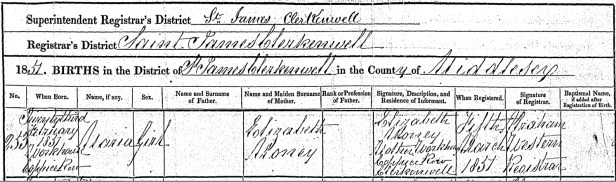 Superintendent Registrar's District St. James Clerkenwell
Registrar's District Saint James Clerkenwell
1851. BIRTHS in the District of St James Clerkenwell in the County of Middlesex
No. When Born. Name, if any. Sex. Name and Surname of Father. Name and Maiden Surname of Mother. Rank or Profession of Father. Signature, Description, and Residence of Informant. When Registered. Signature of Registrar. Baptismal Name, if added after Registration of Birth.
February 1851 Workhouse Coppice Row
Maria
Girl
Elizabeth
Elizabeth Mother Workhouse Coppice Row Clerkenwell
Fifth March 1851
Abraham Registrar